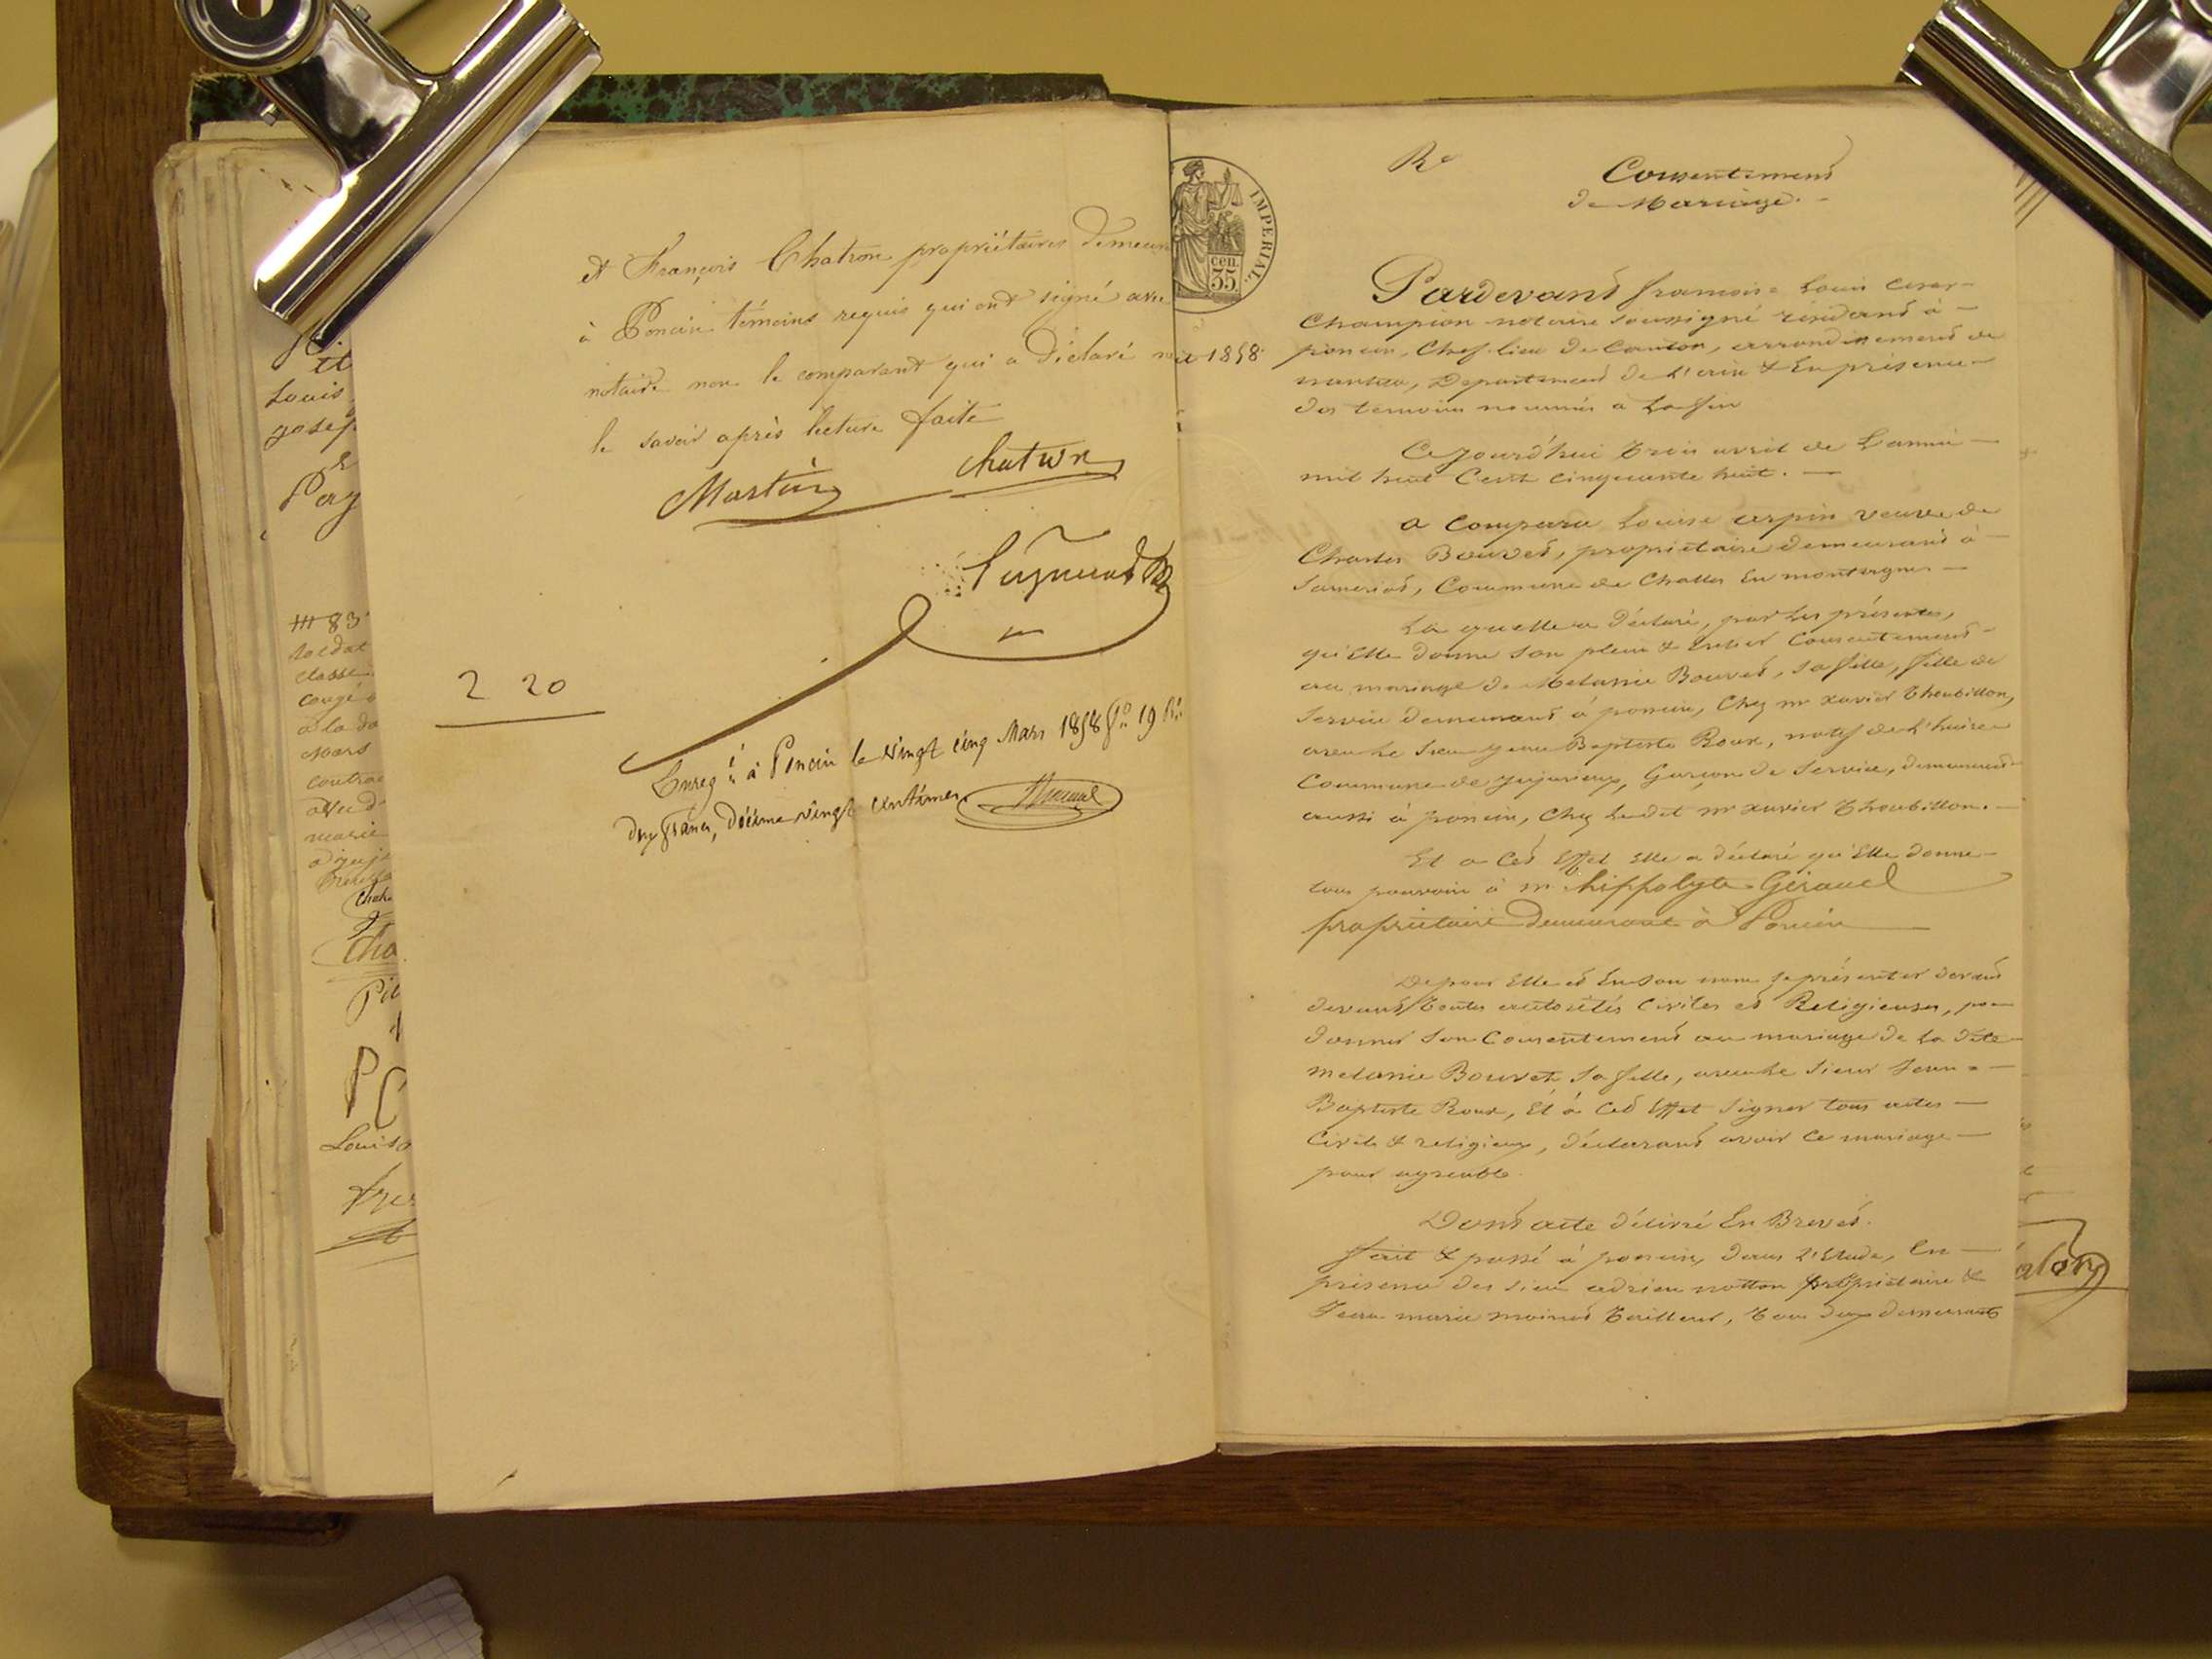 et François Chatron propriétaires demeur
à Poncin témoins requis qui ont signé avec
notaire non le comparant qui a déclaré ne
le savoir après lecture faite
Martin
chatron
2 20
Enreg.é à Poncin le vingt cinq Mars 1858 f.o 19
deux francs, décime vingt centimes
il 1858
IMPÉRIAL.
cen.
35.
et
Louis
Josep
Pay
83
soldat
classe
congé
à la da
Mars
contrac
avec d
marie
Louisa
Re
Consentement
de Mariage. -
Pardevant francois = Louis César -
Champion notaire soussigné résidant à -
poncin, Chef-lieu de Canton, arrondissement de
nantua, Département de l'ain & En présence -
des témoins nommés a la fin
Cejourd'hui trois avril de L'année -
mil huit Cent cinquante huit. -
a comparu Louise arpin veuve de
Charles Bouvet, propriétaire demeurant à -
Commune de Challes En montagne -
La quelle a déclaré, par les présentes,
qu'Elle donne son plein & Entier Consentement -
au mariage de Melanie Bouvet, sa fille, fille de
service demeurant à poncin, Chez mr xavier Thoubillon,
avec le sieur Jean Baptiste Roux, natif de l'huire
Commune de Jujurieux, Garçon de Service, demeurant
aussi à poncin, Chez ledit mr xavier Thoubillon. -
Et a Cet Effet Elle a déclaré qu'Elle donne -
tous pouvoirs à mr hippolyte Giraud
propriétaire demeurant à Poncin
De pour Elle et En son nom se présenter devant
devant toutes autorités Civiles et Religieuses, pour
donner son Consentement au mariage de la dite
melanie Bouvet sa fille, avec le sieur Jean = -
Baptiste Roux, Et à Cet Effet signer tous actes -
Civils & religieux, déclarant avoir ce mariage -
pour agréable.
Dont acte délivré En Brevet.
fait & passé à poncin, dans l'Etude, En -
présence des sieurs adrien notton propriétaire &
Jean marie moinet tailleur, tous deux demeurants